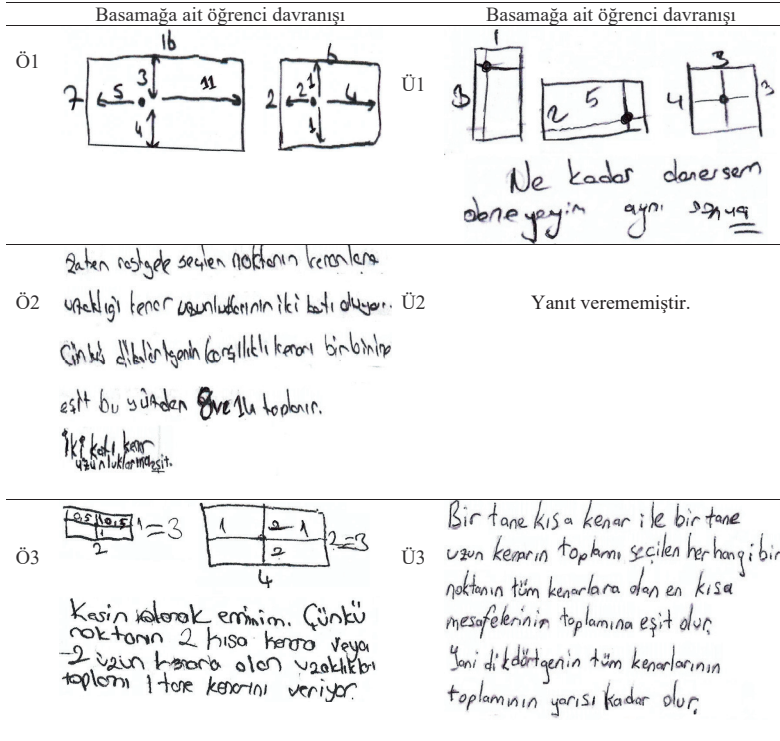 Basamağa ait öğrenci davranışı
Basamağa ait öğrenci davranışı
Ö1
16
7
3
5
11
4
6
2
2
1
4
1
Ü1
1
3
2
5
3
4
3
Ne kadar denersem
deneyeyim aynı sonuç
Ö2
Zaten rastgele seçilen noktanın kenarlara
uzaklığı kenar uzunluklarının iki katı oluyor.
Çünkü dikdörtgenin karşılıklı kenarı birbirine
eşit bu yüzden 8 ve 14 toplanır.
İki katı kenar
uzunluklarına eşit.
Ü2
Yanıt verememiştir.
Ö3
0,5 0,5
1
1=3
2
1
2
1
2=3
2
4
Kesin olarak eminim. Çünkü
noktanın 2 kısa kenara veya
2 uzun kenara olan uzaklıkları
toplamı 1 tane kenarını veriyor.
Ü3
Bir tane kısa kenar ile bir tane
uzun kenarın toplamı seçilen herhangi bir
noktanın tüm kenarlara olan en kısa
mesafelerinin toplamına eşit olur.
Yani dikdörtgenin tüm kenarlarının
toplamının yarısı kadar olur.